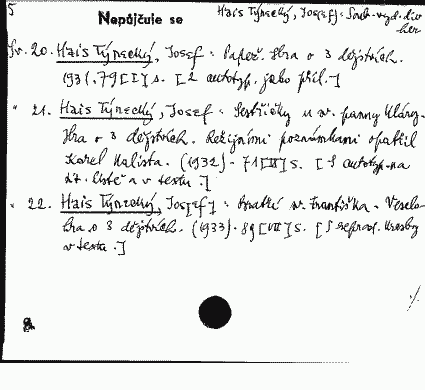 5 Nepůjčuje se Hais Týnecký, Josef: Soub. vyd. div. her
Sv. 20. Hais Týnecký, Josef: Papež. Hra o 3 dějstvích.
1931. 79 [I] s. [2 autotyp. jako příl.]
" 21. Hais Týnecký, Josef: Sestřičky u sv. panny Kláry.
Hra o 3 dějstvích. Režijními poznámkami opatřil
Karel Kalista. (1932). 71 [II] s. [5 autotyp. na
zt. listě a v textu.]
" 22. Hais Týnecký, Jos[ef]: Bratři sv. Františka. Veselo-
hra o 3 dějstvích. (1933). 89 [VII] s. [5 reprod. kresby
v textu.]